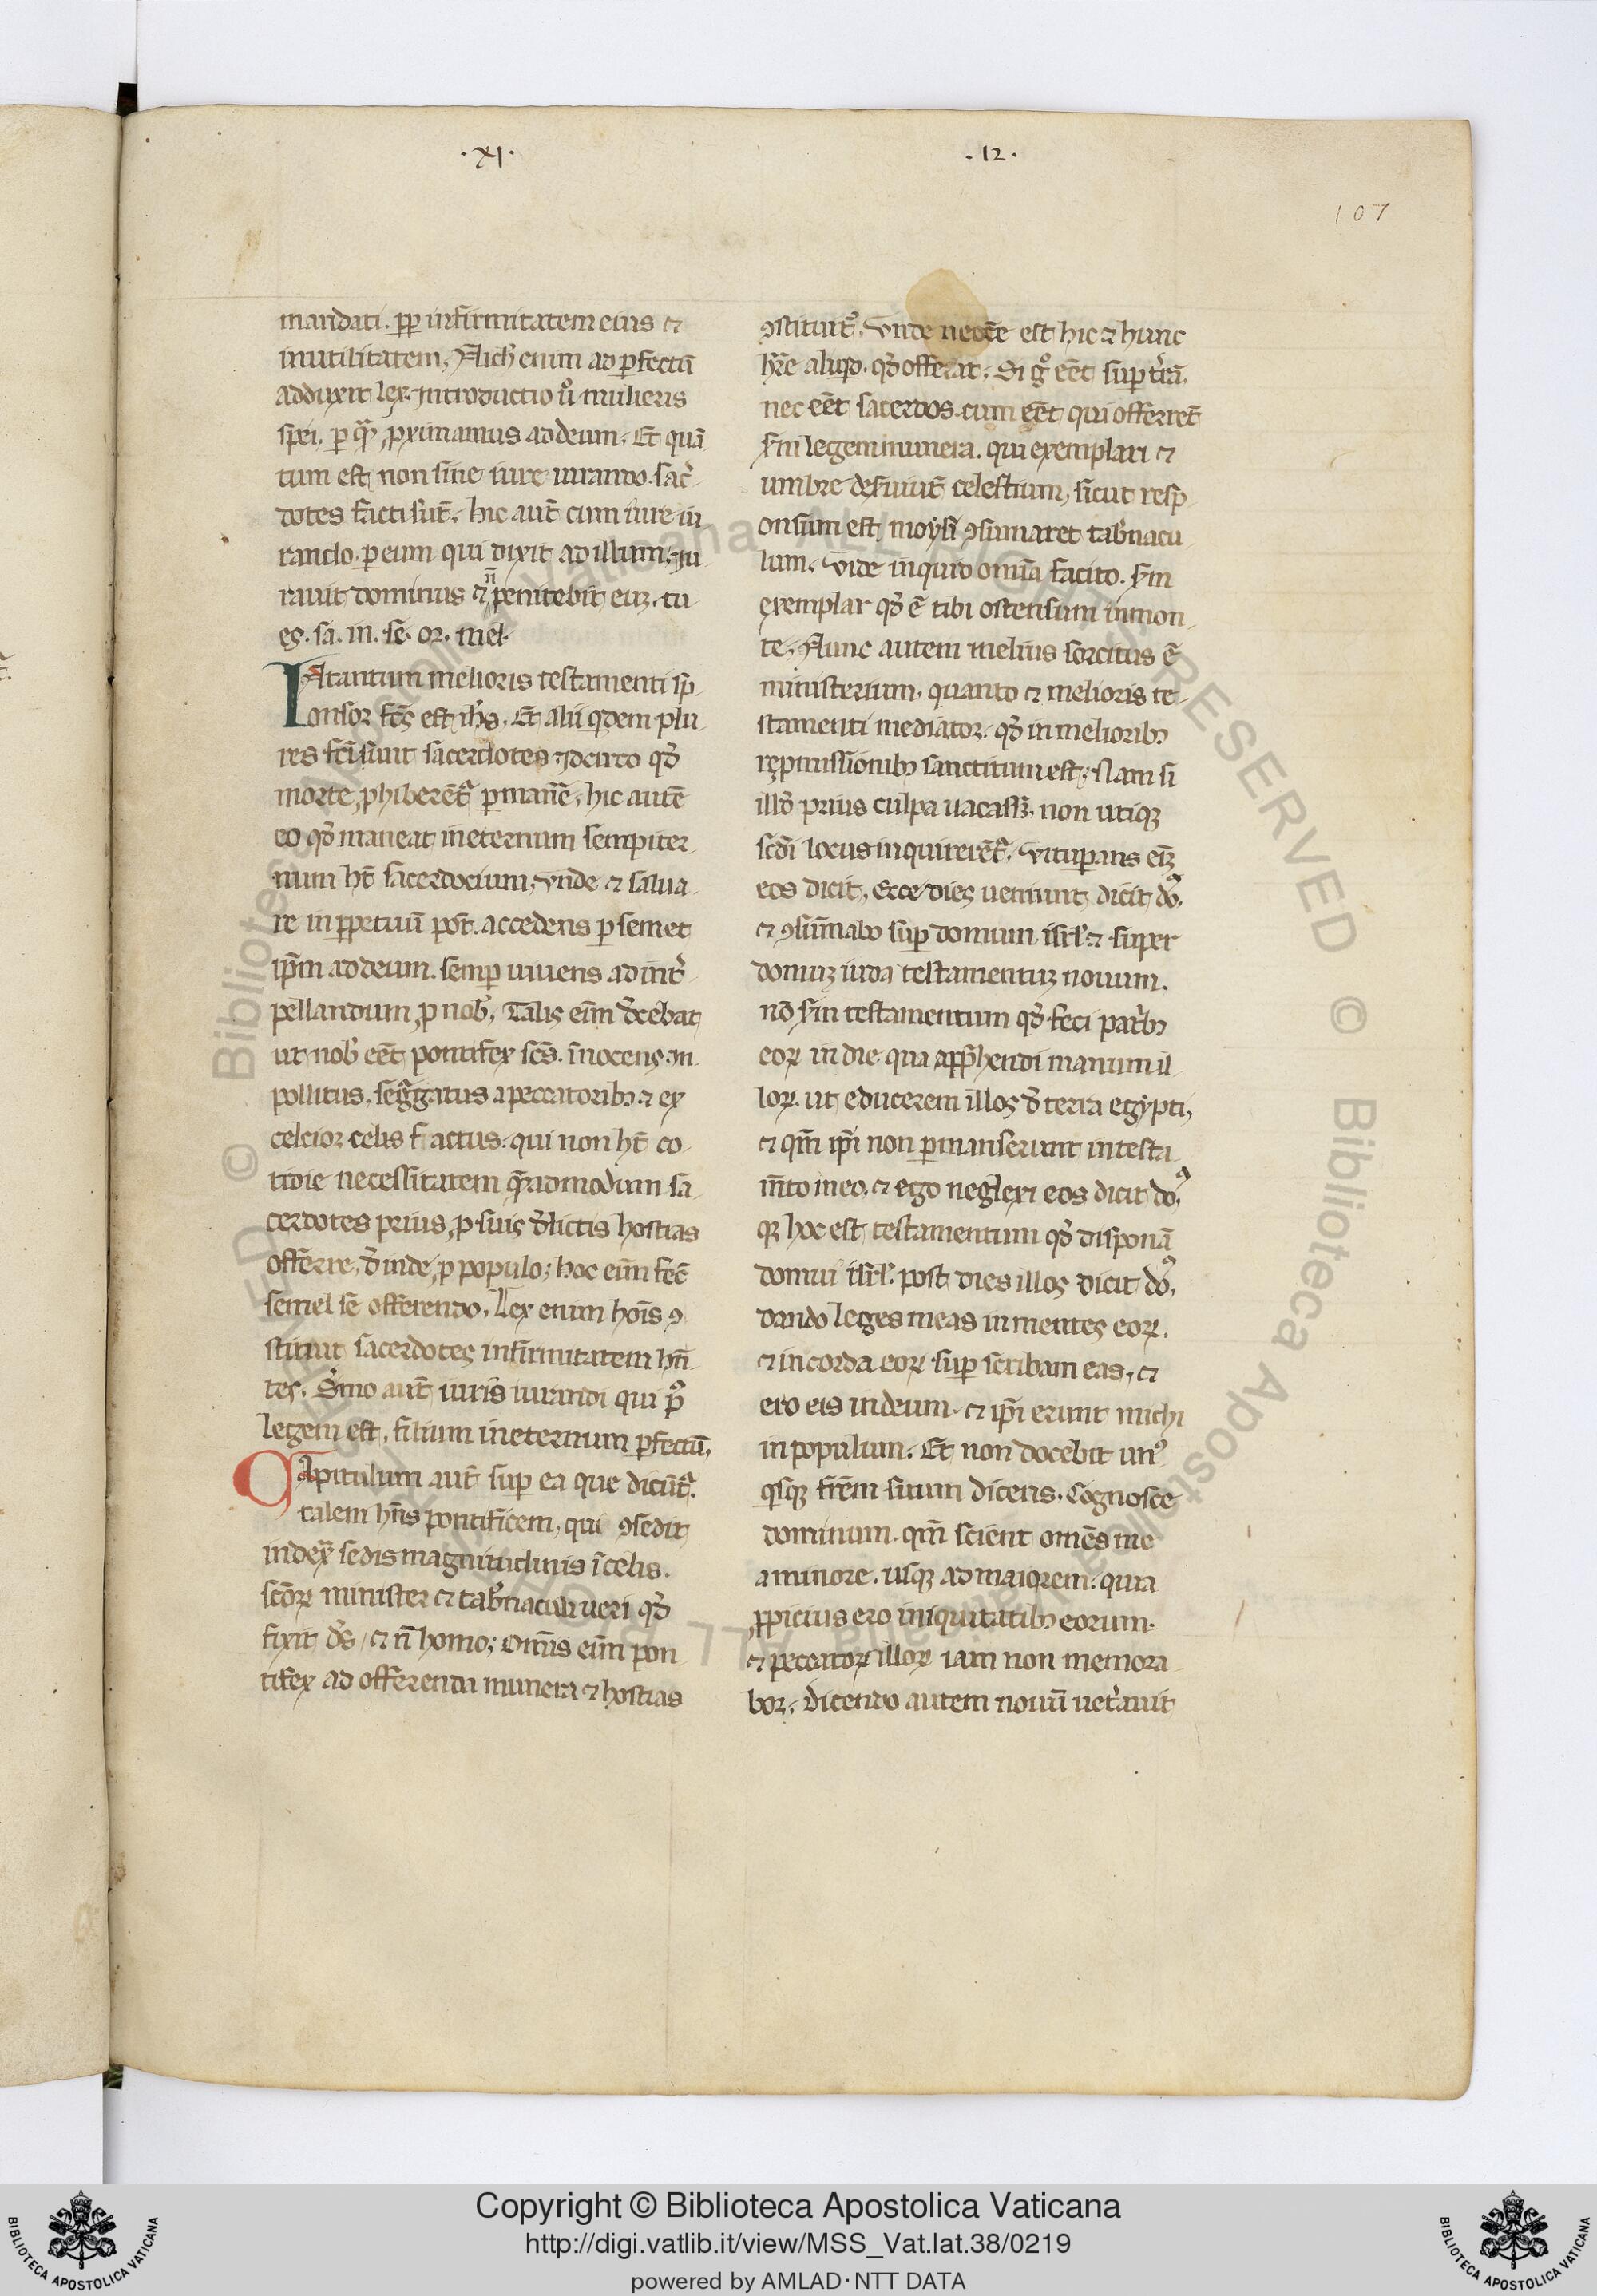 ·XI·
·12·
107
mandati. ꝓp̱ infirmitatem eius ⁊
inutilitatem, Nichł enim ad ꝑfectũ
adduxit lex. Introductio ũo mulieris
spei, ꝑ quã ꝓximamus ad deum. Et quã
tum est, non sine iure iurando. sac̓
dotes facti sũt. hic aut̃ cum iure iu
rando. ꝑ eum qui dixit ad illum. Iu
rauit dominus ⁊ ñ penitebit euꝫ. tu
es. sa. in. se. or. mel.
INtantum melioris testamenti sp
onsor fc̃s est ih̃s. Et alii qⁱdem plu
res fc̃i sunt sacerdotes. Idcirco qđ
morte ꝓhiberẽt᷑ ꝑmanẽ. hic autẽ
eo qđ maneat in eternum sempiter
num ht̃ sacerdocium, vnde ⁊ salua
re in ꝑpetuũ pot̃. accedens ꝑ semet
ip̃m ad deum. semꝑ uiuens ad int̓
pellandum ꝓ nob̓. Talis eim̃ decebat
ut nob̓ eẽt pontifex sc̃s. ĩnocens. In
pollitus. segͣgatus a peccatoribꝫ ⁊ ex
celcior celis factus. qui non ht̃ co
tidie necessitatem quẽadmodum sa
cerdotes prius ꝓ suis delictis hostias
offerre, deinde ꝓ populo; hoc eim̃ fec̃
semel se offerendo. Lex enim hoĩs ꝯ
stituit sacerdotes infirmitatem hñ
tes. Sermo aut̃ iuris iurandi qui pꝰ
legem est. filium in eternum ꝑfectũ.
CApitulum aut̃ suꝑ ea que dicũt᷑.
talem hñs pontificem, qui ꝯsedit
in dext̓ sedis magnitudinis ĩ celis.
sc̃oꝝ minister ⁊ tab̓naculi ueri qđ
fixit ds̃ / ⁊ ñ homo; Omĩs eim̃ pon
tifex ad offerenda munera ⁊ hostias
ꝯstituit᷑. vnde necẽe est hic ⁊ hunc
hr̃e aliquid. qđ offerat. Si gͦ eẽt suꝑ t̓rã.
nec eẽt sacerdos. cum eẽt qui offerret̃
sm̃ legem munera. qui exemplari ⁊
umbre deseruiũt celestium, sicut resp
onsum est moysi ꝯsumaret tab̓nacu
lum. vide inquid omĩa facito. sm̃
exemplar qđ ẽ tibi ostensum in mon
te. Nunc autem melius sorcitus ẽ
ministerium, quanto ⁊ melioris te
stamenti mediator. qđ in melioribꝫ
repmissionibꝫ sanctitum est. Nam si
illđ prius culpa uacassꝫ. non utiqꝫ
scđi locus inquireret᷑. vituꝑans eiꝫ
eos dicit. Ecce dies ueniunt dicit dõ.
⁊ ꝯsum̃abo suꝑ domum isrł ⁊ super
domuꝫ iuda testamentuꝫ nouum.
nõ sm̃ testamentum qđ feci patribꝫ
eoꝝ in die qua app̃hendi manum il
loꝝ. ut educerem illos de terra egypti,
⁊ qm̃ ip̃i non ꝑmanserunt in testa
mẽto meo. ⁊ ego neglexi eos dicit dõ,
qꝫ hoc est testamentum qđ disponã
domui isrł. post dies illos dicit dõ,
dando leges meas in mentes eoꝝ.
⁊ in corda eoꝝ suꝑ scribam eas, ⁊
ero eis in deum. ⁊ ip̃i erunt michi
in populum. Et non docebit unꝰ
qⁱsqꝫ frẽm suum dicens. Cognosce
dominum. qm̃ scient omẽs me
a minore. usqꝫ ad maiorem. quia
ꝓpicius ero iniquitatibꝫ eorum.
⁊ peccatoꝝ illoꝝ iam non memora
bor. dicendo autem nouũ uet̓auit
© Biblioteca Apostolica Vaticana ALL RIGHTS RESERVED
Copyright © Biblioteca Apostolica Vaticana
http://digi.vatlib.it/view/MSS_Vat.lat.38/0219
powered by AMLAD·NTT DATA
BIBLIOTECA APOSTOLICA VATICANA
BIBLIOTECA APOSTOLICA VATICANA